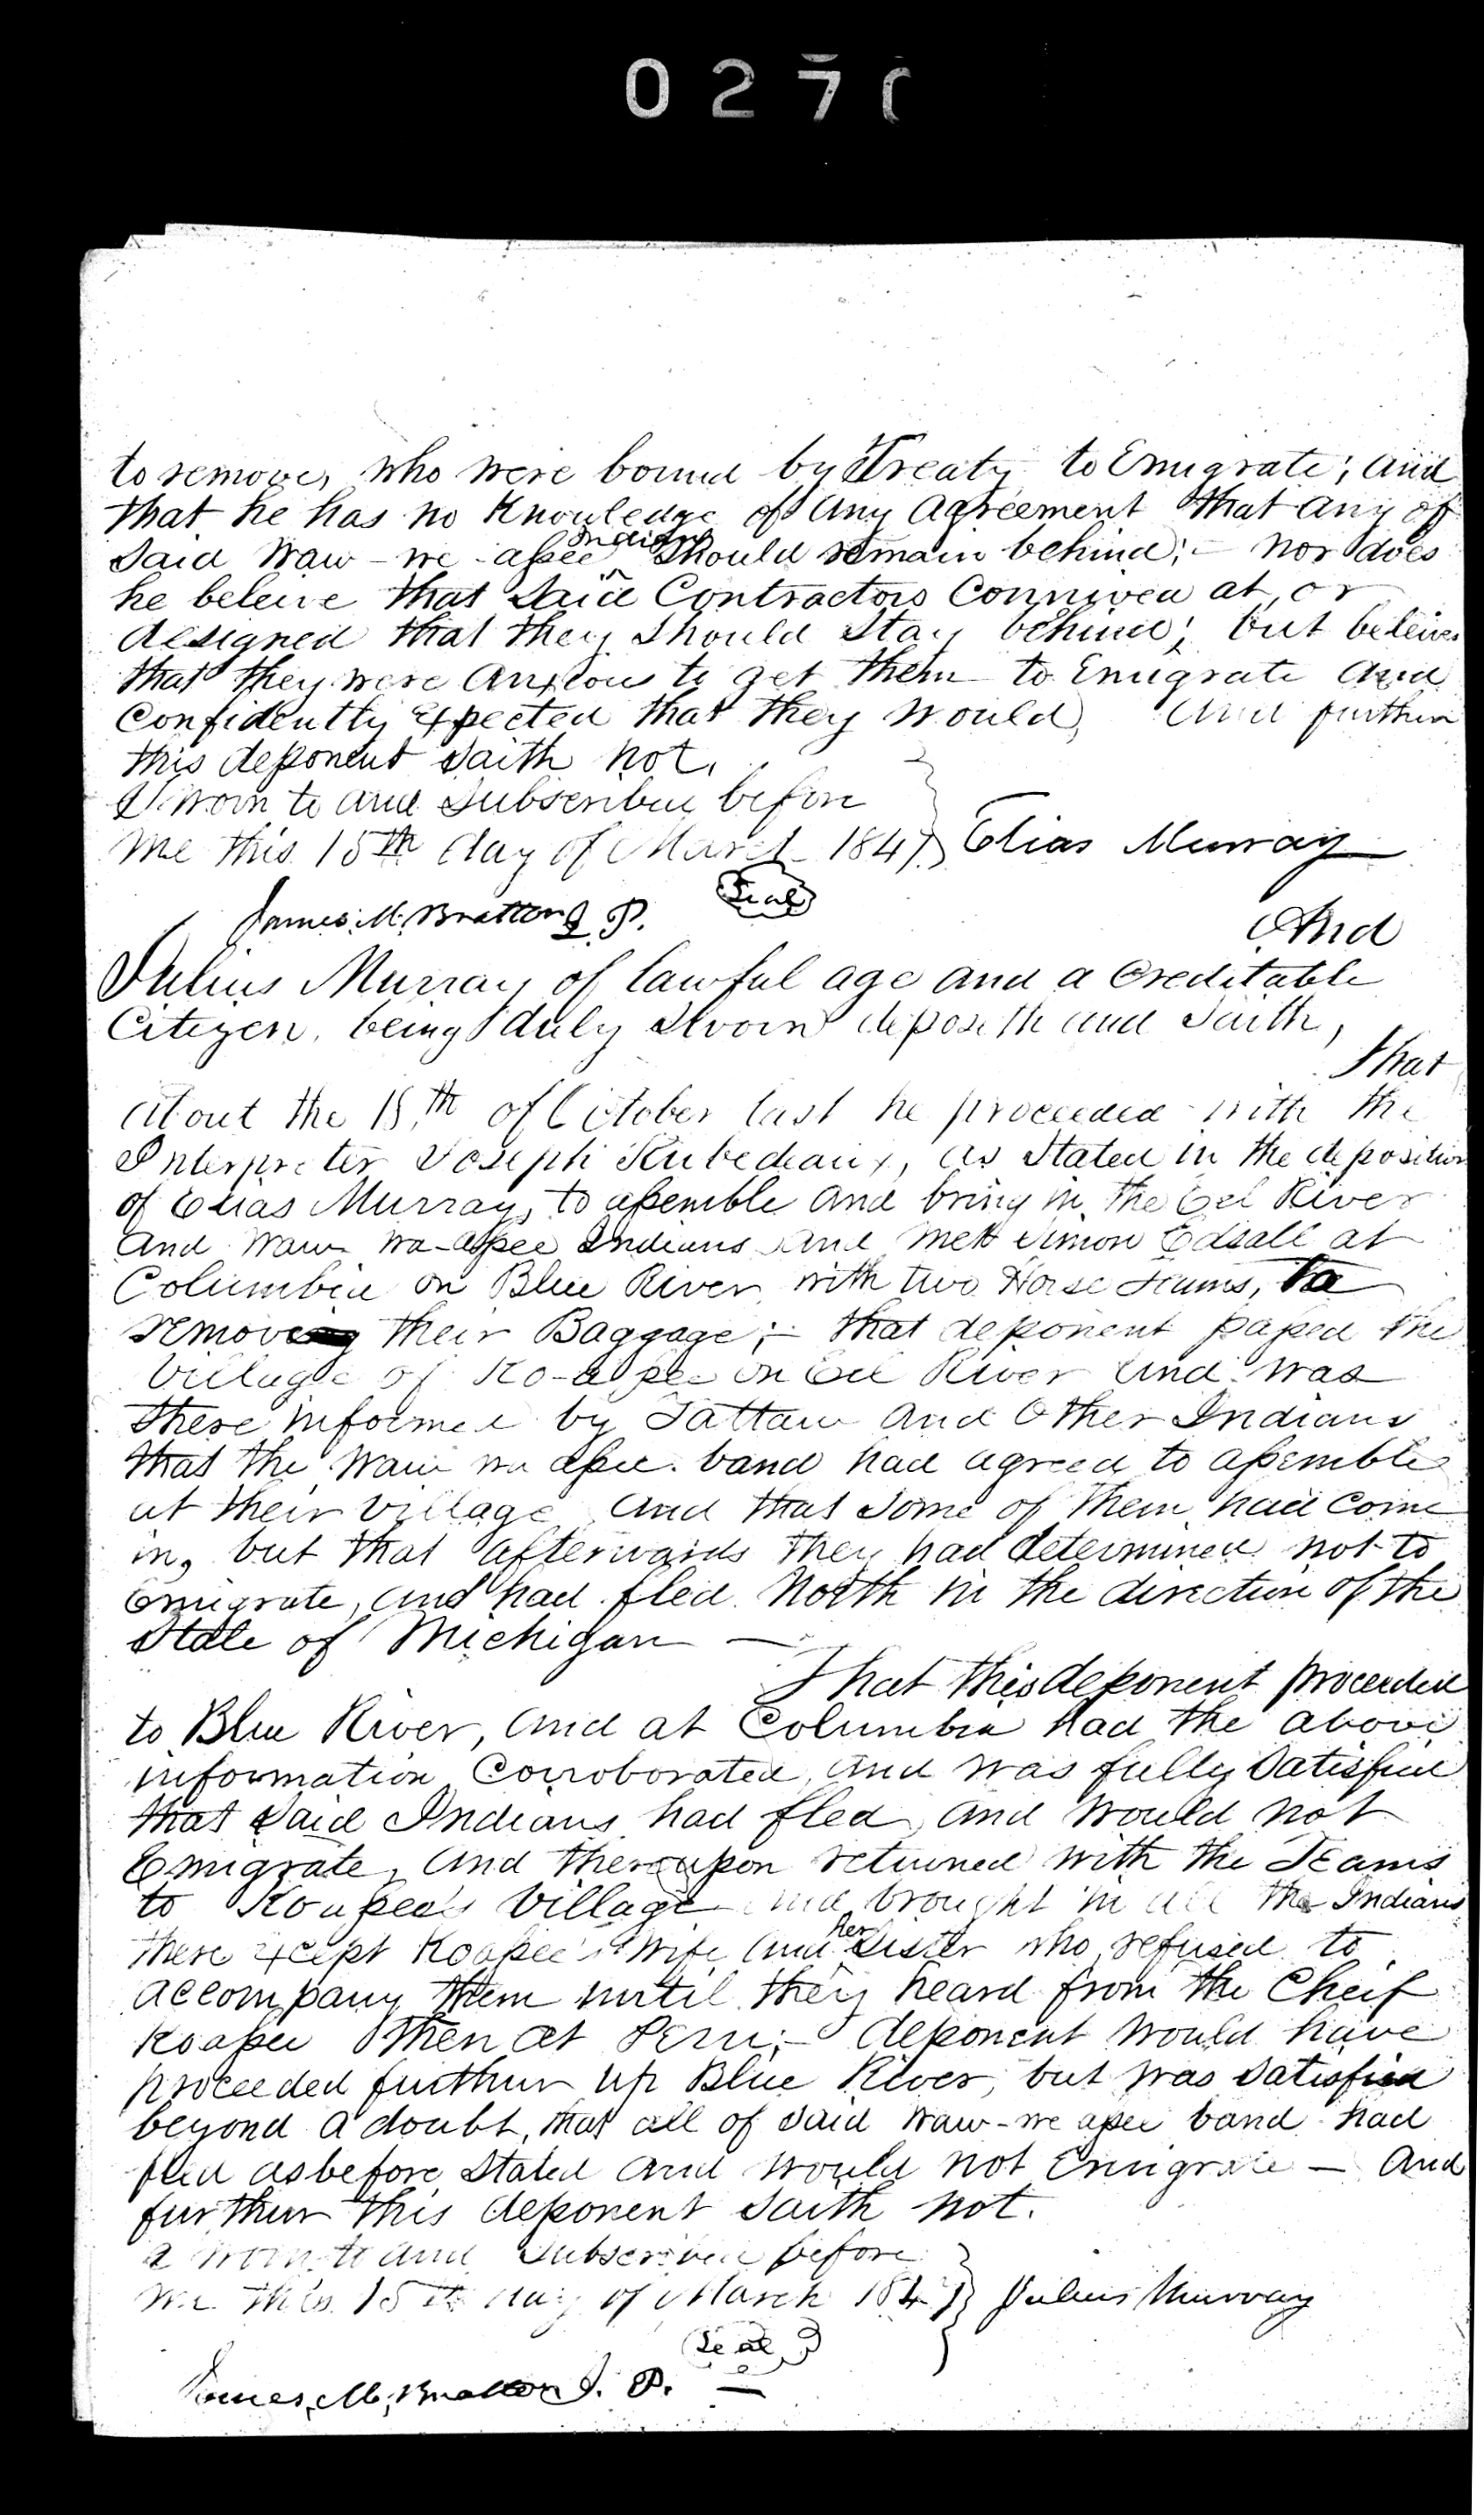 027
to remove, who were bound by Treaty to Emigrate; and
that he has no Knowledge of any agreement that any of
Indians
said Waw-we-assee should remain behind;- nor does
he beleive that said Contractors Connived at, or
designed that they should stay behind; but beleives
that they were anxious to get them to Emigrate and
Confidently Expected that they would, and further
this deponent saith not.
Sworn to and Subscribed before
me this 15th day of March 1847 } Elias Murray
James. M. Bratton J. P. Seal
And
Julius Murray of lawful age and a Creditable
Citizen, being duly sworn deposeth and saith,
that
about the 18th of October last he proceeded with the
Interpreter Joseph Rubedeaux, as stated in the deposition
of Elias Murray, to assemble and bring in the Eel River
and Waw-wa-assee Indians and met Simon Edsall at
Columbia on Blue River with two Horse Teams, to
remove their Baggage;- that deponent passed the
Village of Ko-assee on Eel River and was
there informed by Tattaw and Other Indians
that the Waw wa assee band had agreed to assemble
at their village and that some of them had Come
in, but that afterwards they had determined not to
Emigrate, and had fled North in the direction of the
State of Michigan —
That this deponent proceeded
to Blue River, and at Columbia had the above
information Corroborated, and was fully Satisfied
that said Indians had fled and would not
Emigrate, and thereupon returned with the Teams
to Koassee's Village and brought in all the Indians
her
there except Koassee's wife and Sister who refused to
accompany them until they heard from the Cheif
Koassee then at Peru;- deponent would have
proceeded further up Blue River, but was satisfied
beyond a doubt, that all of said Waw-we assee band had
fled as before stated and would not Emigrate — and
further this deponent saith not.
Sworn to and Subscribed before
me this 15th day of March 1847 } Julius Murray
Seal
James. M. Bratton J. P.